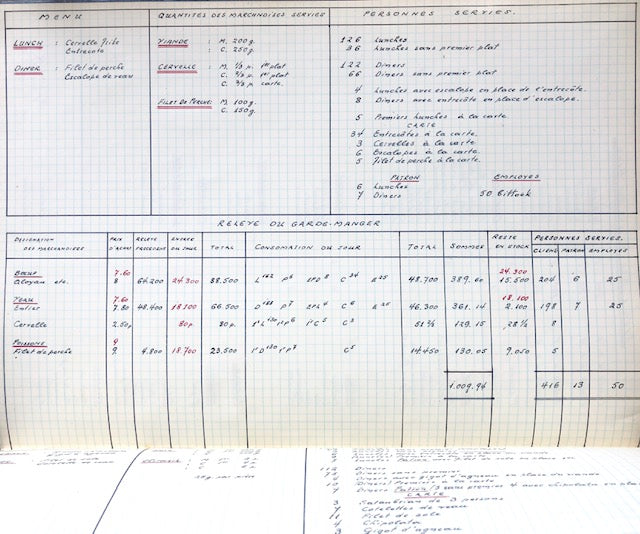 MENU
QUANTITÉS DES MARCHNOISES SERVIES
PERSONNES SERVIES.
LUNCH : Cervelle frite
Entrecote
DINER : Filet de perche
Escalope de veau
VIANDE : M. 200g.
C. 250g.
CERVELLE : M. 1/3 p. 1er plat
C. 2/3 p. 1er plat
C. 3/3 p. carte.
FILET DE PERCHE: M. 100g.
C. 150g.
126 Lunches
36 Lunches sans premier plat
122 Diners
66 Diners sans premier plat
4 Lunches avec escalope en place de l'entrecôte.
8 Diners avec entrecôte en place d'escalope.
5 Premiers lunches à la carte
CARTE
34 Entrecôtes à la carte.
3 Cervelles à la carte
6 Escalopes à la carte.
5 Filet de perche à la carte.
PATRON
EMPLOYES
6 Lunches
7 Diners
50 Bittock
RELEVE DU GARDE-MANGER
DESIGNATION DES MARCHANDISES
PRIX D'ACHAT
RELEVE PRECEDENT
ENTREE DU JOUR
TOTAL
CONSOMATION DU JOUR
TOTAL
SOMMES
RESTE EN STOCK
PERSONNES SERVIES.
CLIENTS PATRON EMPLOYES
BOEUF 7.60 24.300
Aloyau etc. 8 64.200 24.300 88.500 L162 P6 EPD8 C34 E25 48.700 389.60 15.500 204 6 25
VEAU 7.60 18.100
Entier 7.80 48.400 18.100 66.500 D188 P7 EPL4 C6 E25 46.300 361.14 2.100 198 7 25
Cervelle 2.50p. 80p. 80p. 1'L130 1'P6 1'C5 C3 51 2/3 129.15 28 1/3 8
POISSONS 9
Filet de perche 9. 4.800 18.700 23.500 1'D130 1'P7 C5 14.450 130.05 9.050 5
1.009.94 416 13 50
112 Diners
Diners sans premier
Diners avec gigot d'agneau en place de viande
10 Diners Premiers à la carte
7 Diners Patron/3 sans premier 4 avec chipolata en place
CARTE
3 Chateaubrian de 3 persons
7 Cotelettes de veau
11 Filet de sole
4 Chipolata
3 Gigot d'agneau